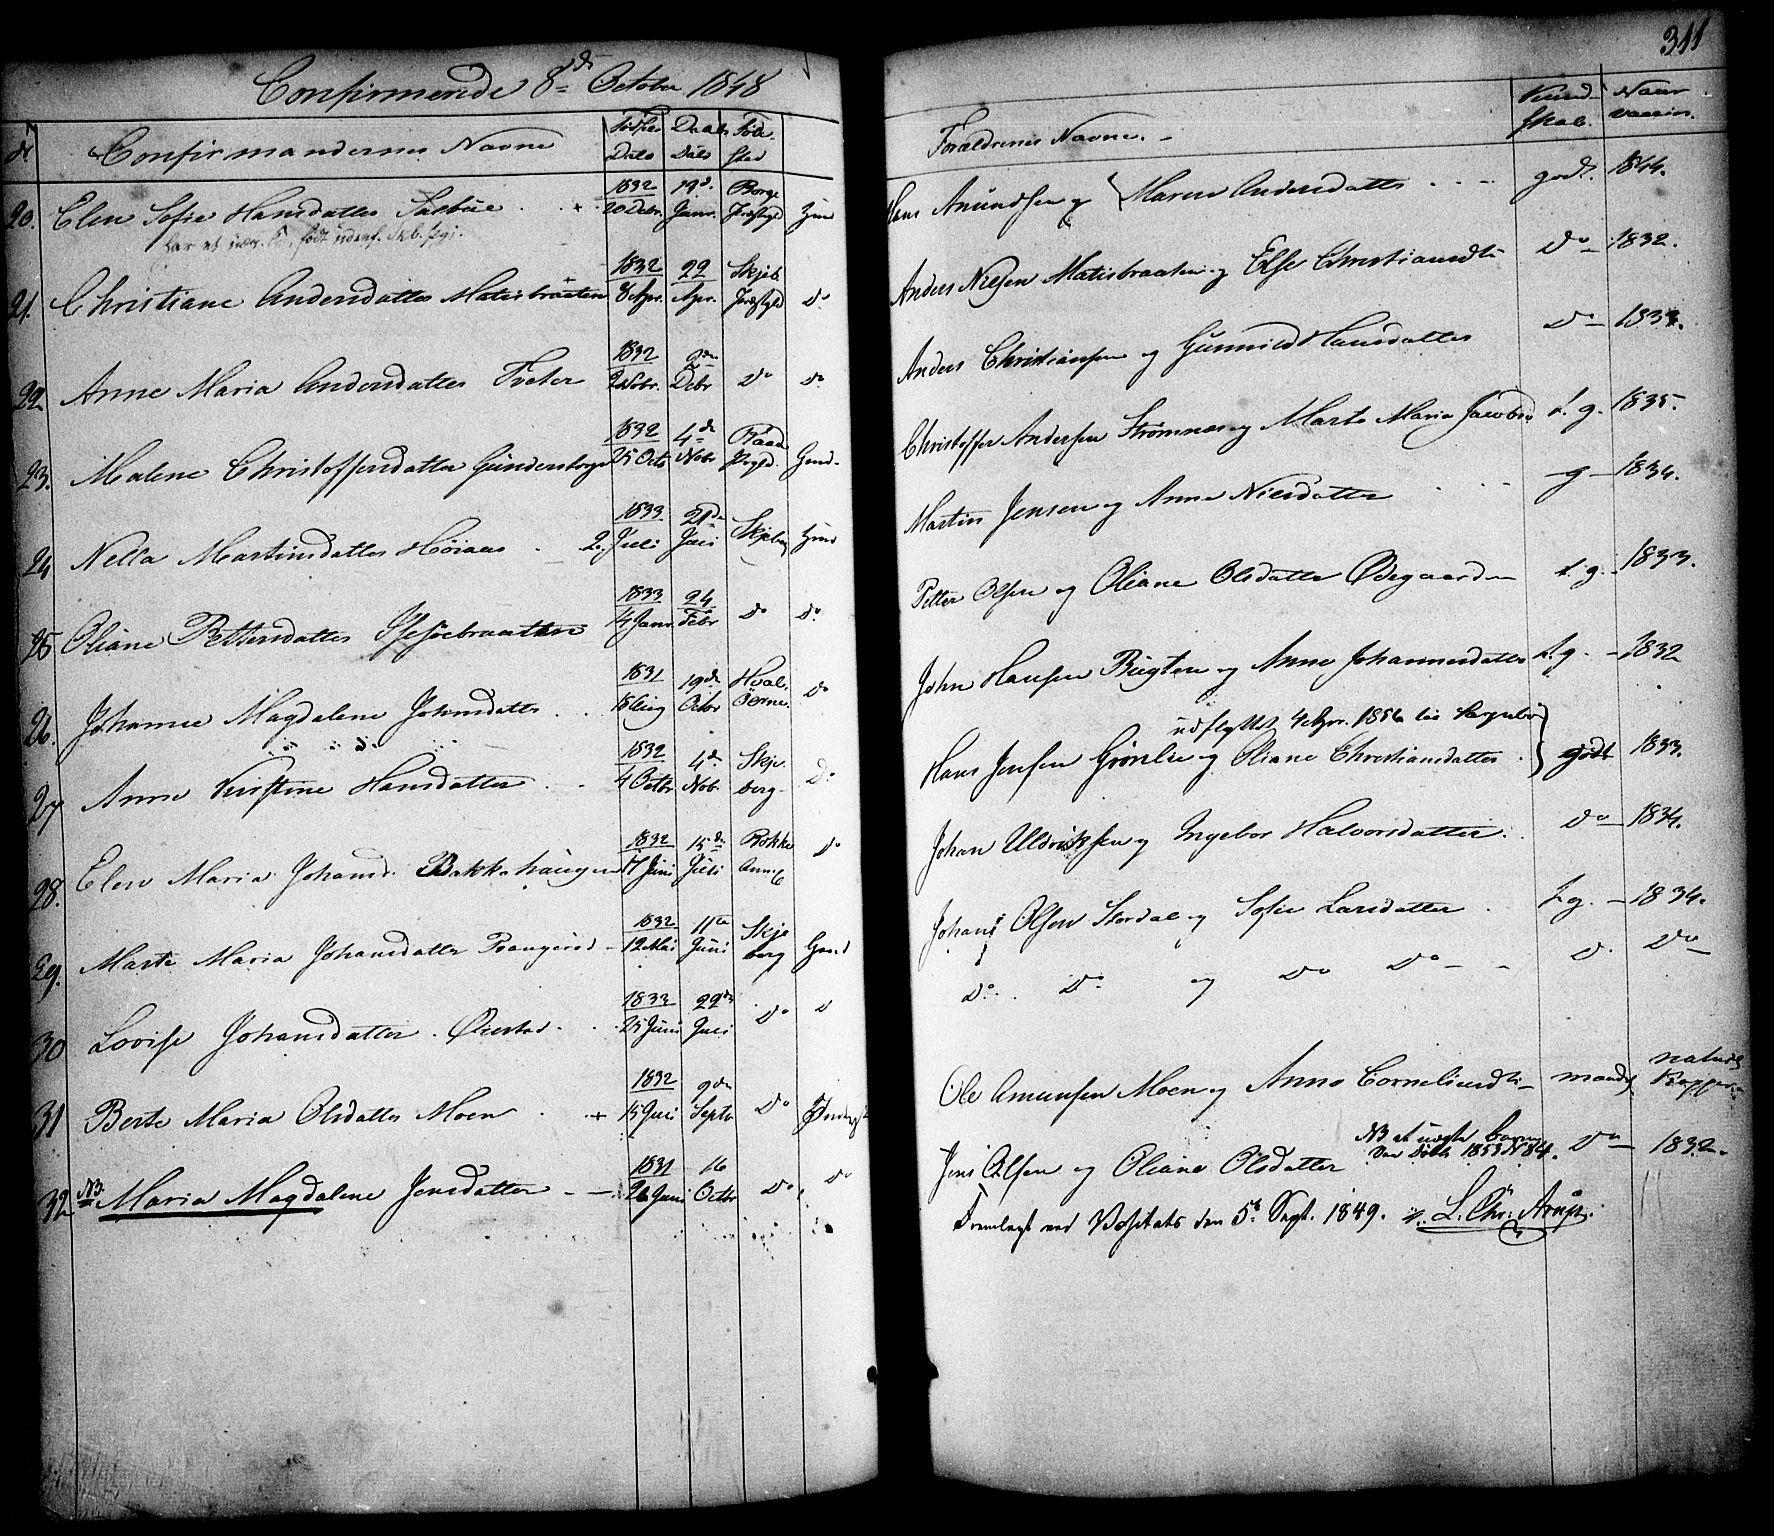 311
Confirmerede 8de October 1848
Nr Confirmandernes Navne Fødsels Dato Daabs Dato Føde Sted
Forældrenes Navne. Kundskab. Naar vaccin.
20. Elen Sofie Hansdatter 1832 20 Debr. 19d. Janr. Borge Præstgld
Hans Amundsen og Maren Andersdatter godt. 1844.
21. Christiane Andersdatter Matisbraaten 1832 8 Apr. 22 Apr. Skjeb. Præstgld do.
Anders Nielsen Matisbraaten og Else Christiansdt. do 1832.
22. Anne Maria Andersdatter Tveter 1832 2 Nobr. 2den Debr do do.
Anders Christiansen og Gunnild Hansdatter do 1833.
23. Malene Christoffersdatter 1832 25 Octb 4de Nobr Raade Prgld.
Christoffer Andersen Strømnæs og Marte Maria Jacobsd. t. g. 1835.
24 Nella Martinsdatter Høiaas 1833 2. Juli 21de Juli Skjeberg
Martin Jensen og Anne Nielsdatter g 1834.
25 Oliane Pettersdatter 1833 4 Janr. 24 Febr do do.
Petter Olsen og Oliane Olsdatter Ødegaarden t. g. 1833.
26. Johanne Magdalene Johnsdatter 1831 18 Aug 19de Octbr Hval. Öerne. do
John Hansen Bugten og Anne Johannesdatter t. g. 1832
27 Anne Kirstine Hansdatter 1832 4 Octbr 4de Nobr Skjeberg do
udflyttet 4 Apr. 1856 til
Hans Jensen Grönlie og Oliane Christiansdatter godt 1833.
28. Elen Maria Johansd. Bakkehaugen 1832 17 Juni 15de Juli Rokke Annex do
Johan Uldriksen og Ingebor Halvorsdatter. do 1834.
29. Marte Maria Johansdatter 1832 12 Mai 11te Juni Skjeberg
Johans Olsen Stordal og Sofie Larsdatter t. g. 1834.
30 Lovise Johansdatter 1833 25 Juni 22de Juli do d
do. do og do do d. do
31 Berte Maria Olsdatter Moen + 15 Juli 1832 9de Septb do
Ole Amunsen Moen og Anne Corneliusdt. naturl Kopper
32 NB. Maria Magdalene Jensdatter 1831 26 Juni 16 Octbr do. do
Jens Olsen og Oliane Olsdatter NB et uægte Barn Dødte 1853 N 84. do 1832.
Fremlagt ved Visitats den 5t Sept. 1849. L. Chr. Arup.